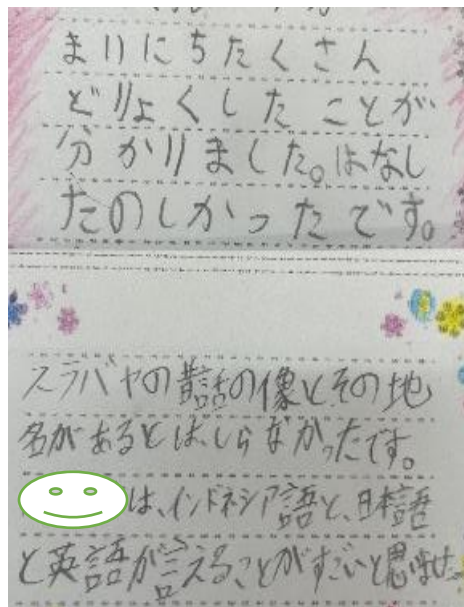 まいにちたくさん
どりょくしたことが
分かりました。はなし
たのしかったです。
スラバヤの昔話の像とその地
名があるとは、しらなかったです。
は、インドネシア語と、日本語
と英語が言えることがすごいと思いました